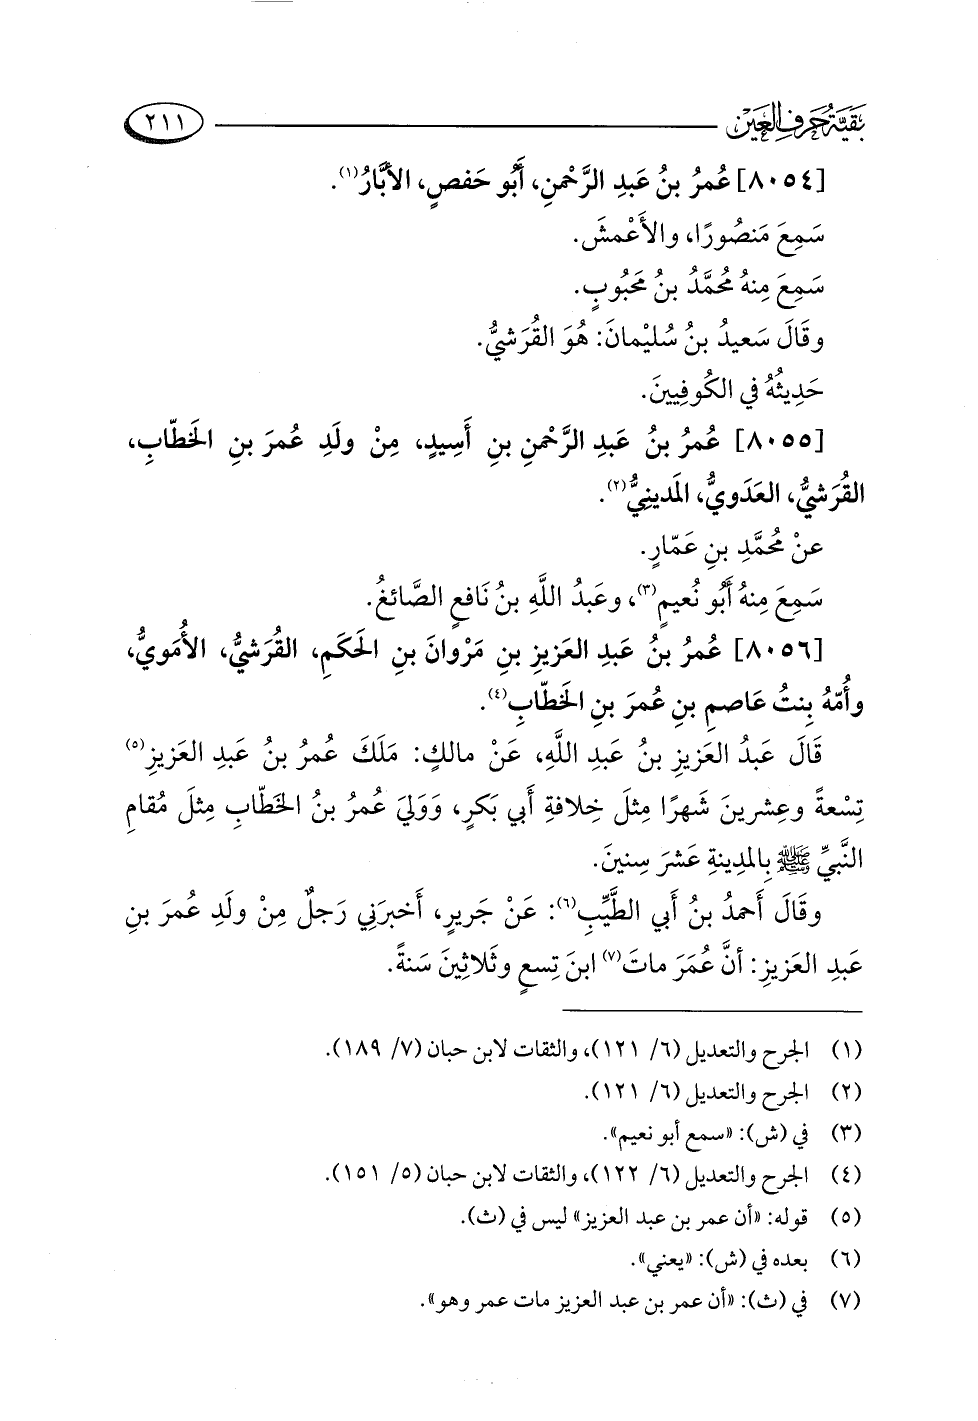 بَقِيَّةُ حَرفِ العَين ٢١١
[٨٠٥٤] عُمرُ بنُ عَبدِ الرَّحْمنِ، أَبُو حَفصٍ، الأَبَّارُ(١).
سَمِعَ مَنصُورًا، والأَعْمشَ.
سَمِعَ مِنهُ مُحمَّدُ بنُ مَحَبُوبٍ.
وقَالَ سَعيدُ بنُ سُليْمانَ: هُوَ القُرَشيُّ.
حَدِيثُهُ في الكُوفِيينَ.
[٨٠٥٥] عُمرُ بنُ عَبدِ الرَّحْمنِ بنِ أَسِيدٍ، مِنْ ولَدِ عُمرَ بنِ الخَطّابِ،
القُرَشيُّ، العَدَويُّ، المَدينِيُّ(٢).
عنْ مُحمَّدِ بنِ عَمّارٍ.
سَمِعَ مِنهُ أَبُو نُعيمٍ(٣)، وعَبدُ اللَّهِ بنُ نَافعٍ الصَّائغُ.
[٨٠٥٦] عُمرُ بنُ عَبدِ العَزيزِ بنِ مَرْوانَ بنِ الحَكَمِ، القُرَشيُّ، الأُمَويُّ،
وأُمّهُ بِنتُ عَاصمِ بنِ عُمرَ بنِ الخَطّابِ(٤).
قَالَ عَبدُ العَزيزِ بنُ عَبدِ اللَّهِ، عَنْ مالكٍ: مَلَكَ عُمرُ بنُ عَبدِ العَزيزِ(٥)
تِسْعةً وعِشرينَ شَهرًا مِثلَ خِلافةِ أَبي بَكرٍ، وَوَليَ عُمرُ بنُ الخَطّابِ مِثلَ مُقامِ
النَّبيِّ ﷺ بِالمدِينةِ عَشرَ سِنينَ.
وقَالَ أَحمدُ بنُ أَبي الطَّيِّبِ(٦): عَنْ جَريرٍ، أَخبرَني رَجلٌ مِنْ ولَدِ عُمرَ بنِ
عَبدِ العَزيزِ: أنَّ عُمَرَ ماتَ(٧) ابنَ تِسعٍ وثَلاثِينَ سَنةً.
(١) الجرح والتعديل (٦/ ١٢١)، والثقات لابن حبان (٧/ ١٨٩).
(٢) الجرح والتعديل (٦/ ١٢١).
(٣) في (ش): «سمع أبو نعيم».
(٤) الجرح والتعديل (٦/ ١٢٢)، والثقات لابن حبان (٥/ ١٥١).
(٥) قوله: «أن عمر بن عبد العزيز» ليس في (ث).
(٦) بعده في (ش): «يعني».
(٧) في (ث): «أن عمر بن عبد العزيز مات عمر وهو».